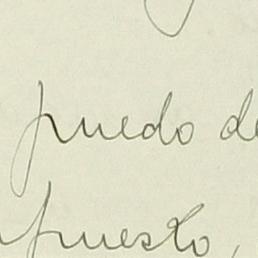 puedo de
puesto,